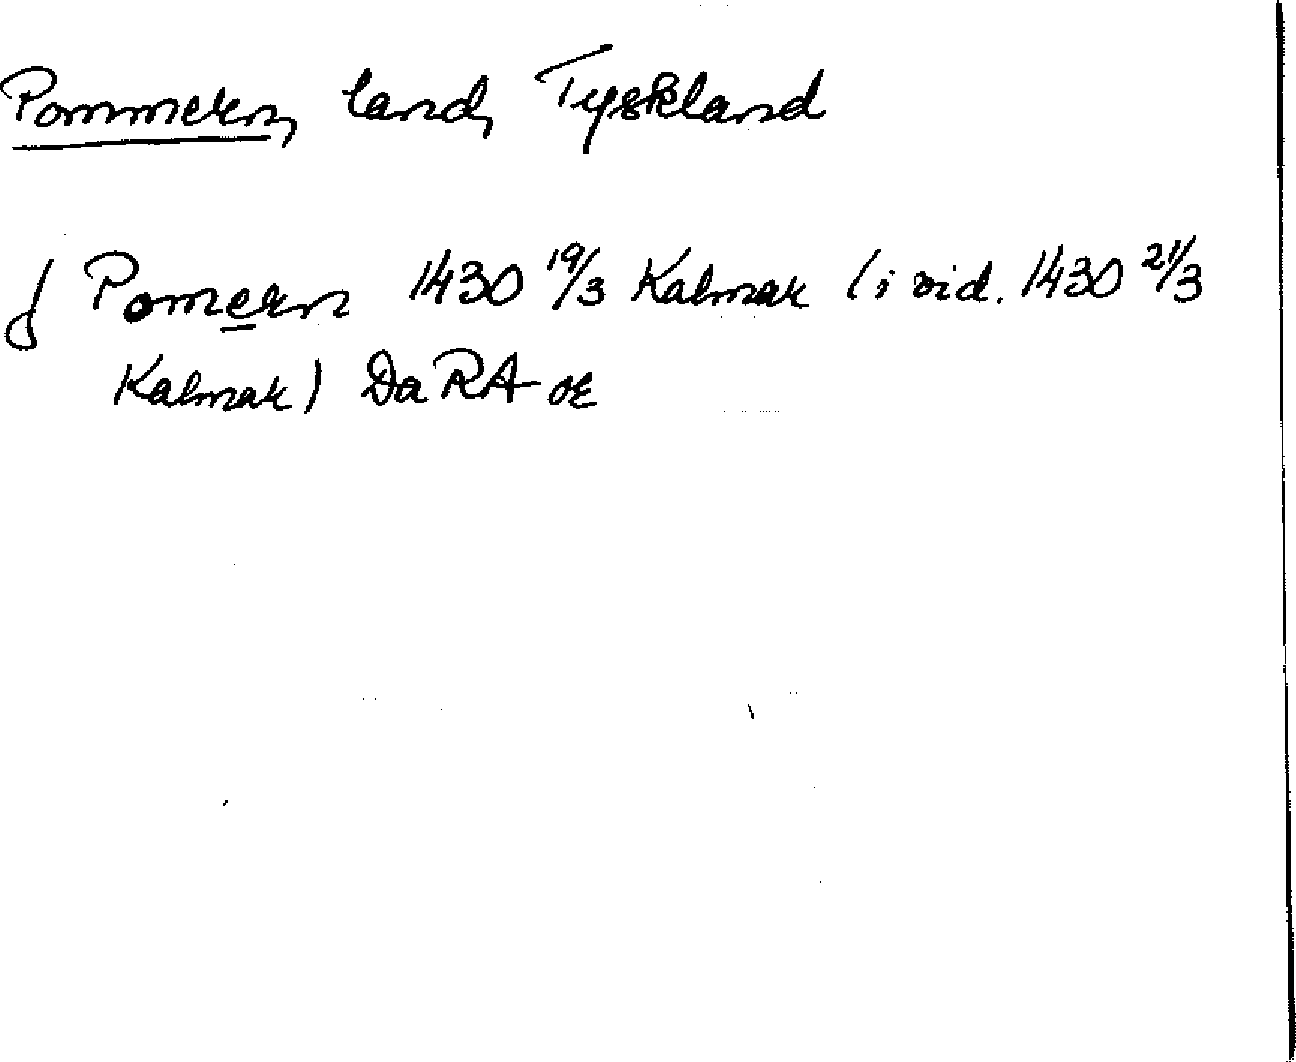 Pommern, land, Tyskland
J Pomern 1430 19/3 Kalmar (i vid. 1430 21/3
Kalmar) DaRA or